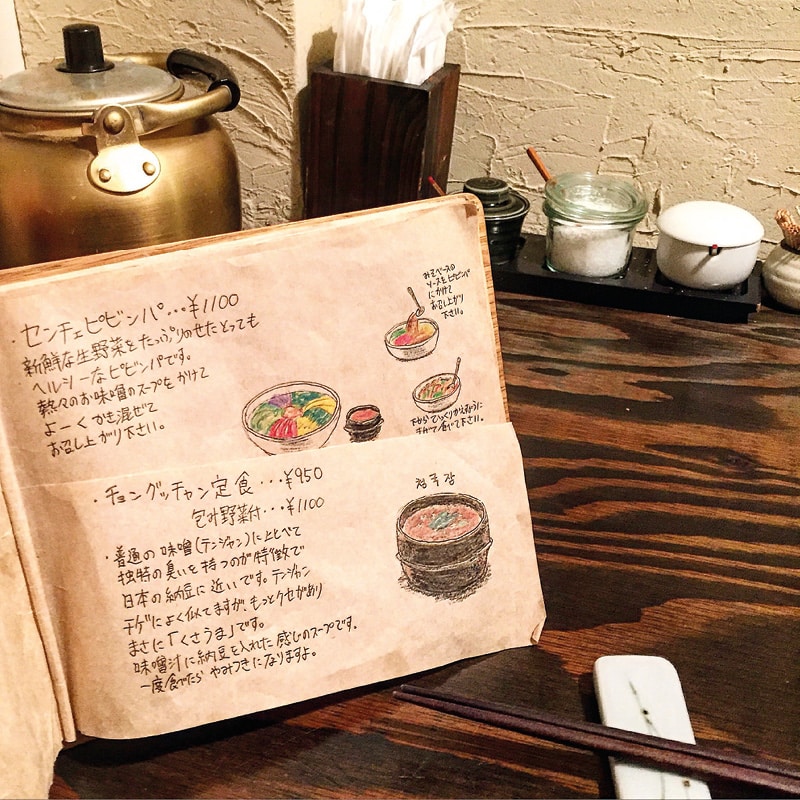 ・センチェビビンパ・・・¥1100
新鮮な生野菜をたっぷりのせたとっても
ヘルシーなビビンパです。
熱々のお味噌のスープをかけて
よーくかき混ぜて
お召し上がり下さい。
みそベースの
ソースをビビンパ
にかけて
お召し上がり
下さい。
下からひっくりかえすように
まぜて食べて下さい。
・チョングッチャン定食・・・¥950
包み野菜付・・・¥1100
・普通の味噌(テンジャン)に比べて
独特の臭いを持つのが特徴で
日本の納豆に近いです。テンジャン
チゲによく似てますが、もっとクセがあり
まさに「くさうま」です。
味噌汁に納豆を入れた感じのスープです。
一度食べたらやみつきになりますよ。
청국장